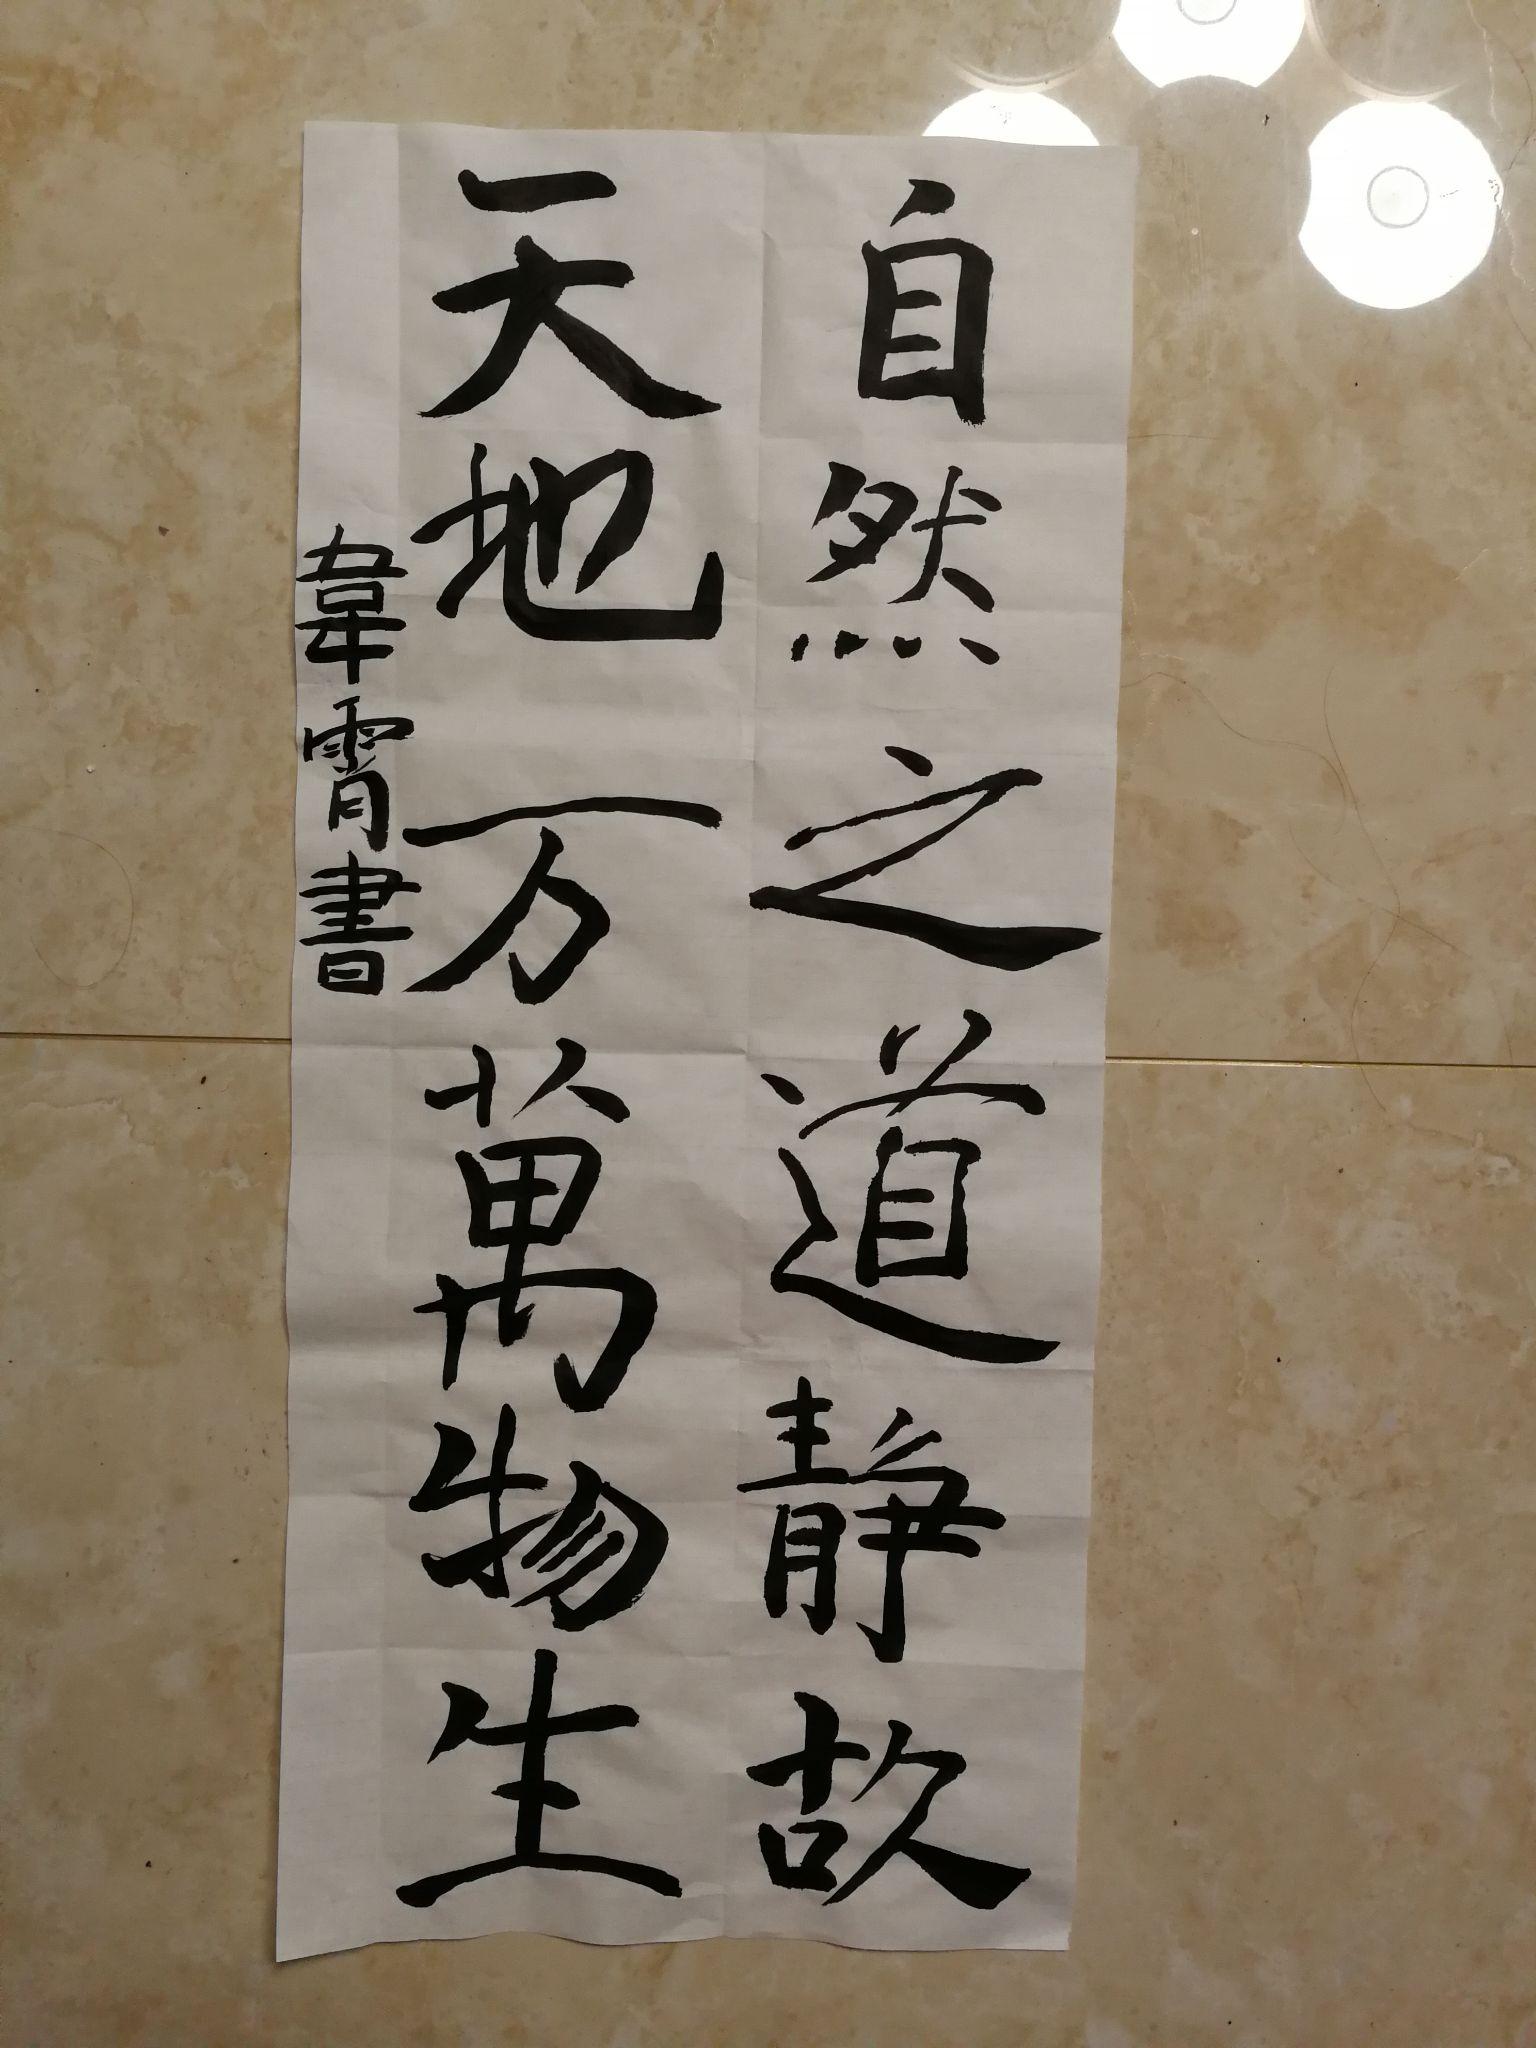 自然之道静故
天地万萬物生
韋霄書